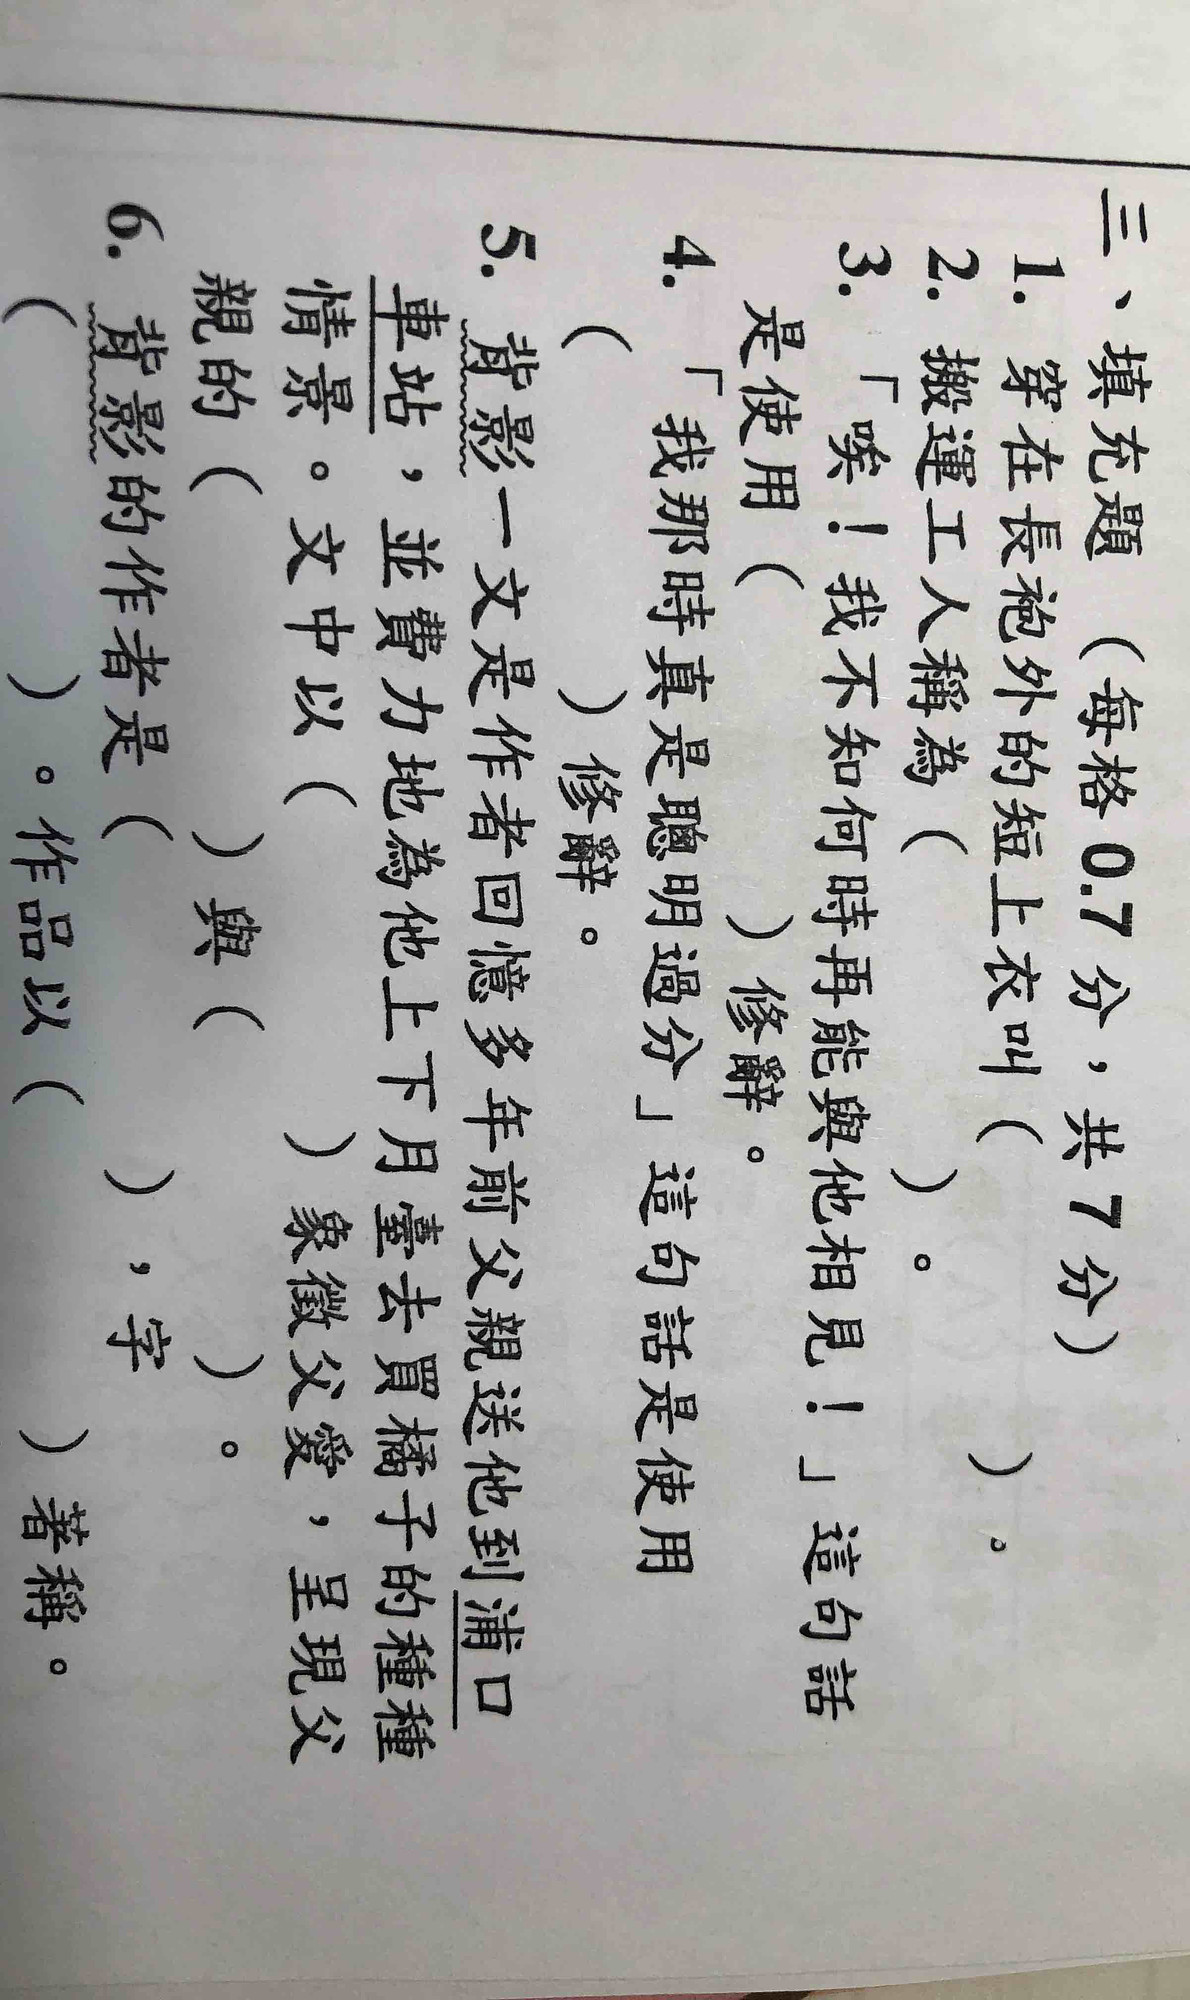 三、填充題（每格0.7分，共7分）
1. 穿在長袍外的短上衣叫（ ）。
2. 搬運工人稱為（ ）。
3. 「唉！我不知何時再能與他相見！」這句話
是使用（ ）修辭。
4. 「我那時真是聰明過分」這句話是使用
（ ）修辭。
5. 背影一文是作者回憶多年前父親送他到浦口
車站，並費力地為他上下月臺去買橘子的種種
情景。文中以（ ）象徵父愛，呈現父
親的（ ）與（ ）。
6. 背影的作者是（ ），字
（ ）。作品以（ ）著稱。